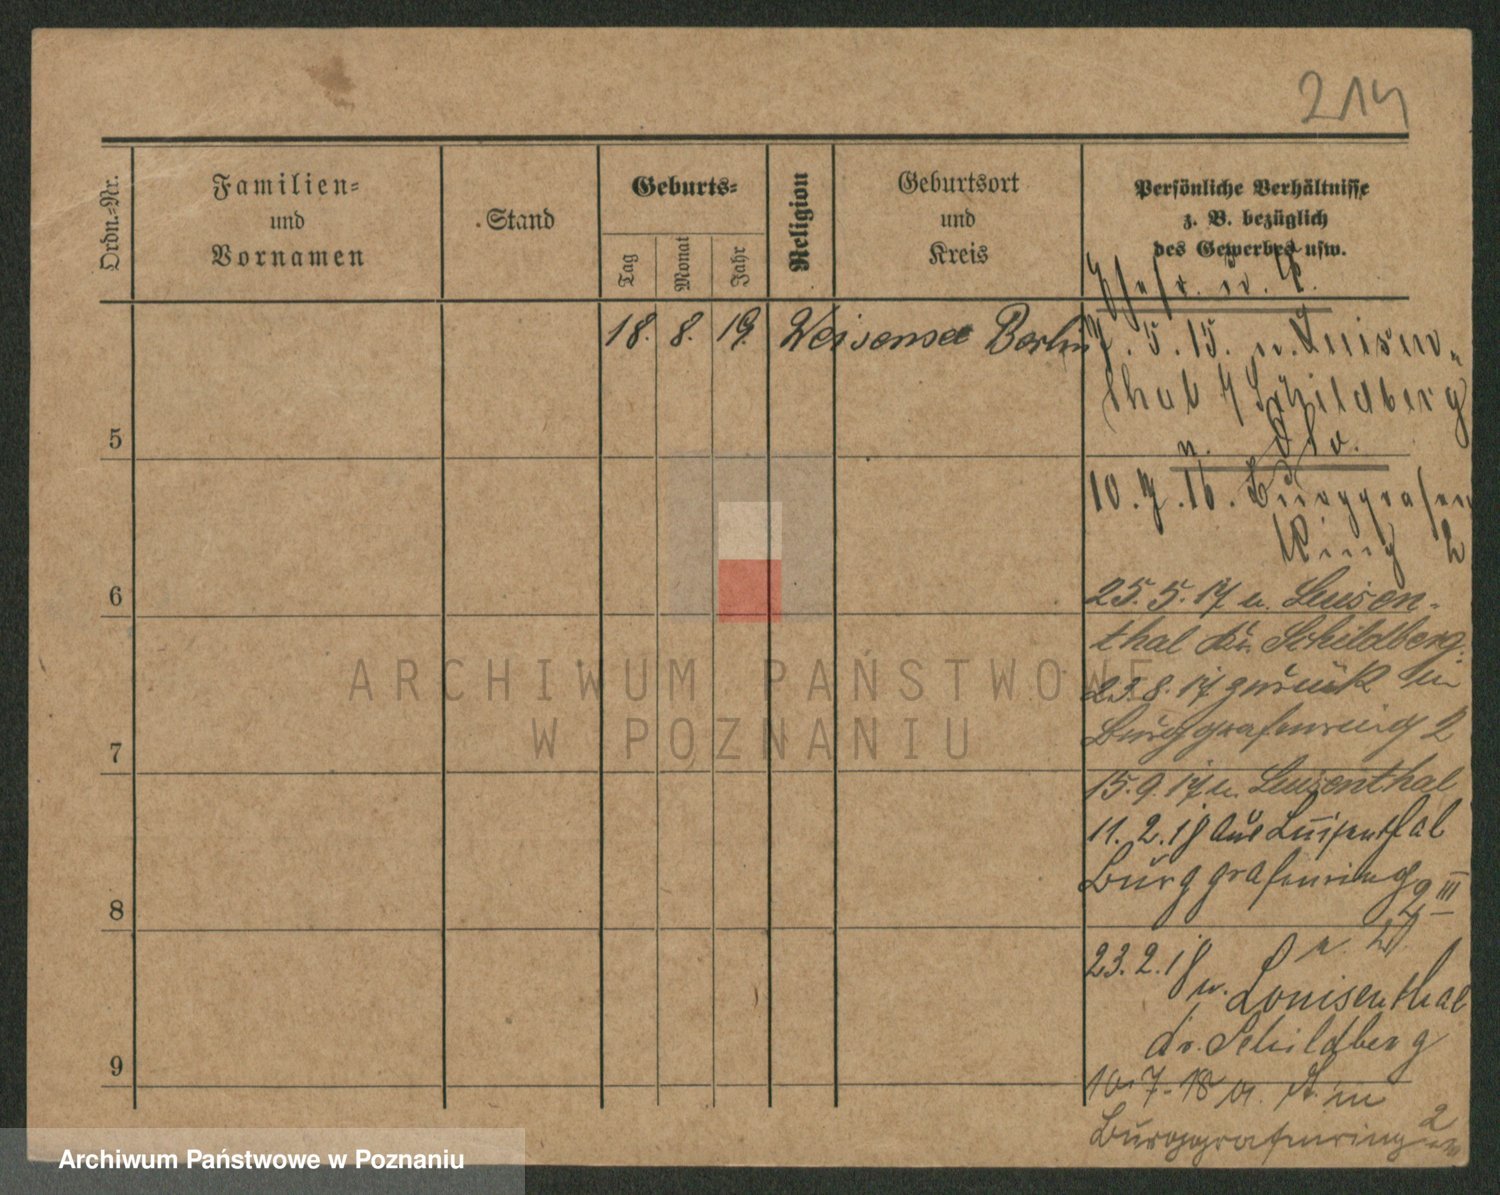 214
Ordn.-Nr.
Familien-
und
Vornamen
Stand
Geburts-
Tag
Monat
Jahr
Religion
Geburtsort
und
Kreis
Persönliche Verhältnisse
z. B. bezüglich
des Gewerbes usw.
18. 8. 19. Weisensee Berlin
7. 5. 15. n. Luisen-
thal Schildberg
5
10. 7. 16. Burggrafen
Ring 2
6
25. 5. 17 n. Luisen-
thal Kr. Schildberg.
23.8.17 zurück
Burggrafenring 2
7
15.9.17 n. Luisenthal
11. 2. 18 aus Luisenthal
Burggrafenring
2 III
8
23. 2. 18
n. Louisenthal
Kr. Schildberg
9
10.7.18
Burggrafenring 2
ARCHIWUM PAŃSTWOWE
W POZNANIU
Archiwum Państwowe w Poznaniu